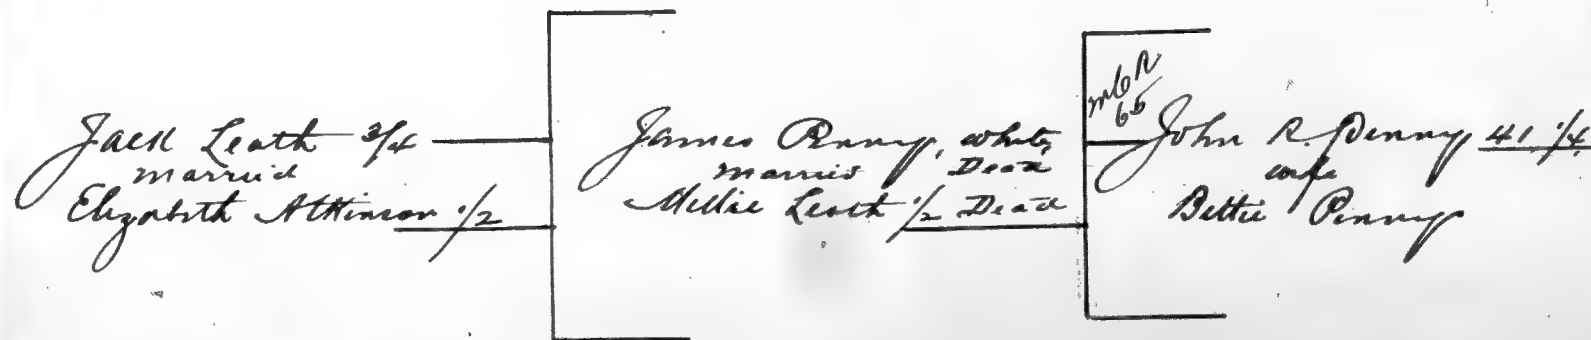 Jack Leath 3/4
married
Elizabeth Atkinson 1/2
James Penny, white,
married Dead
Millie Leath 1/2 Dead
65
John R. Penny 41 1/4
wife
Bettie Penny